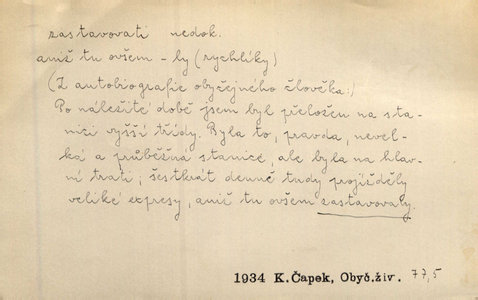 zastavovati nedok.
aniž tu ovšem -ly (rychlíky)
(Z autobiografie obyčejného člověka:)
Po náležité době jsem byl přeložen na sta-
nici vyšší třídy. Byla to, pravda, nevel-
ká a průběžná stanice, ale byla na hlav-
ní trati; šestkrát denně tudy projížděly
veliké expresy, aniž tu ovšem zastavovaly.
1934 K.Čapek, Obyč.živ. 77,5